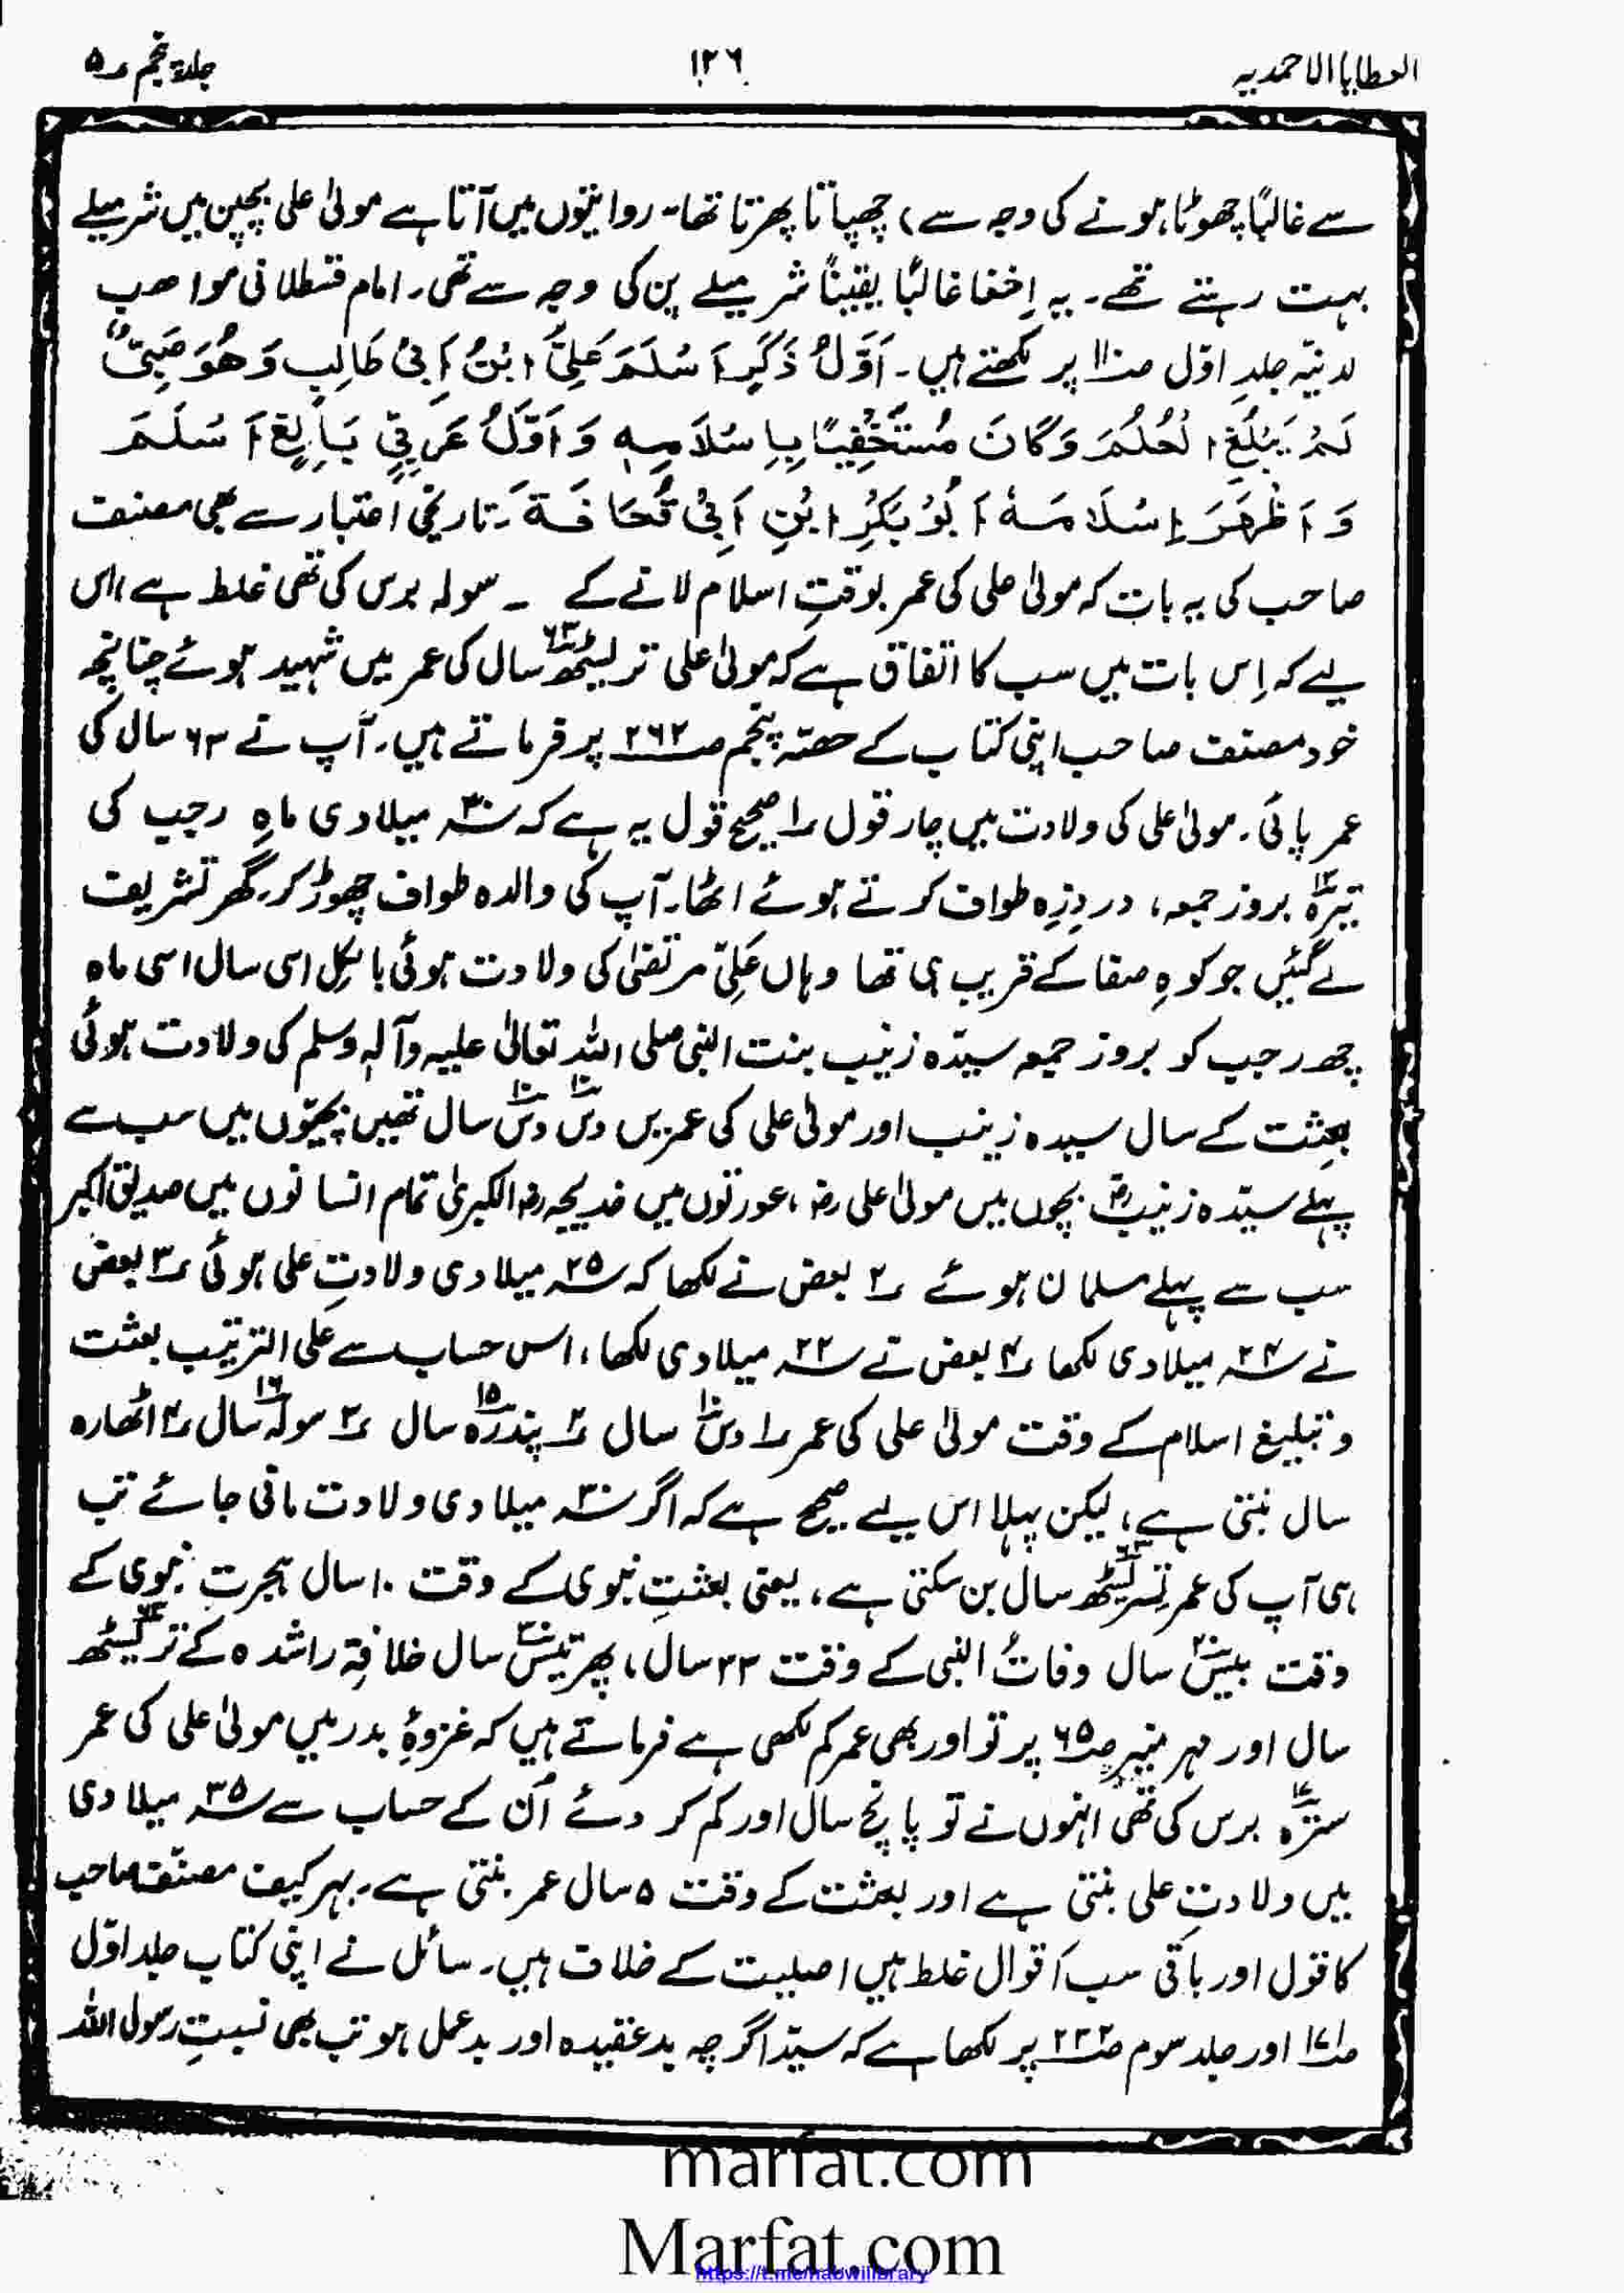 العطایا الاحمدیہ
۱۲۶
جلد پنجم ۵
سے غالبًا چھوٹا ہونے کی وجہ سے، چھپاتا پھرتا تھا۔ روایتوں میں آتا ہے مولیٰ علی بچپن میں شرمیلے
بہت رہتے تھے۔ یہ اِخفا غالبًا یقینًا شرمیلے پن کی وجہ سے تھی۔ امام قسطلانی مواھب
لدنیّہ جلدِ اوّل پر لکھتے ہیں۔ اَوَّلُ ذَکَرٍ اَسْلَمَ عَلِیُّ ابْنُ اَبِیْ طَالِبٍ وَھُوَ صَبِیٌّ
لَمْ یَبْلُغِ الْحُلُمَ وَکَانَ مُسْتَخْفِیًا بِاِسْلَامِہٖ وَ اَوَّلُ عَرَبِیٍّ بَالِغٍ اَسْلَمَ
وَ اَظْھَرَ اِسْلَامَہٗ اَبُوْ بَکْرِ ابْنِ اَبِیْ قُحَافَۃَ۔ تاریخی اعتبار سے بھی مصنف
صاحب کی یہ بات کہ مولیٰ علی کی عمر بوقتِ اسلام لانے کے ۔ سولہ برس کی تھی غلط ہے اس
لیے کہ اِس بات میں سب کا اتفاق ہے کہ مولیٰ علی تریسٹھ ۶۳ سال کی عمر میں شہید ہوئے چنانچہ
خود مصنف صاحب اپنی کتاب کے حصّہ پنجم صـ ۲۶۲ پر فرماتے ہیں۔ آپ نے ۶۳ سال کی
عمر پائی۔ مولیٰ علی کی ولادت میں چار قول ۱ صحیح قول یہ ہے کہ ۳۰؁ میلادی ماہِ رجب کی
تیرہ ۱۳ بروز جمعہ، دردِزِہ طواف کرتے ہوئے اٹھا۔ آپ کی والدہ طواف چھوڑ کر گھر تشریف
لے گئیں جو کوہِ صفا کے قریب ہی تھا وہاں عَلِیّ مرتضٰی کی ولادت ہوئی بالکل اسی سال اسی ماہ
چھ رجب کو بروز جمعہ سیّدہ زینب بنت النبی صلی اللہ تعالیٰ علیہ وآلہٖ وسلم کی ولادت ہوئی
بعثت کے سال سیدہ زینب اور مولیٰ علی کی عمریں دس ۱۰ دس ۱۰ سال تھیں بچیّوں میں سب سے
پہلے سیّدہ زینب رض بچوں میں مولیٰ علی رض، عورتوں میں خدیجہ رض الکبریٰ تمام انسانوں میں صدیق اکبر
سب سے پہلے مسلمان ہوئے ۲ بعض نے لکھا کہ ۲۵؁ میلادی ولادتِ علی ہوئی ۳ بعض
نے ۲۴؁ میلادی لکھا ۴ بعض نے ۲۲؁ میلادی لکھا، اس حساب سے علی الترتیب بعثت
و تبلیغ اسلام کے وقت مولیٰ علی کی عمر ۱ دس ۱۰ سال ۲ پندرہ ۱۵ سال ۳ سولہ ۱۶ سال ۴ اٹھارہ
سال بنتی ہے، لیکن پہلا اس لیے صحیح ہے کہ اگر ۳۰؁ میلادی ولادت مانی جائے تب
ہی آپ کی عمر تریسٹھ ۶۳ سال بن سکتی ہے، یعنی بعثتِ نبوی کے وقت ۱۰ سال ہجرت نبوی کے
وقت بیس ۲۰ سال وفاتُ النبی کے وقت ۳۳ سال، پھر تیس ۳۰ سال خلافۃِ راشدہ کے تریسٹھ ۶۳
سال اور مہر منیر صـ ۶۵ پر تو اور بھی عمر کم لکھی ہے فرماتے ہیں کہ غزوۂِ بدر میں مولیٰ علی کی عمر
سترہ ۱۷ برس کی تھی انہوں نے تو پانچ سال اور کم کر دئے اُن کے حساب سے ۳۵؁ میلادی
میں ولادتِ علی بنتی ہے اور بعثت کے وقت ۵ سال عمر بنتی ہے۔ بہر کیف مصنّف صاحب
کا قول اور باقی سب اَقوال غلط ہیں اصلیت کے خلاف ہیں۔ سائل نے اپنی کتاب جلد اوّل
صـ ۱۷۱ اور جلد سوم صـ ۲۳۲ پر لکھا ہے کہ سیّد اگرچہ بد عقیدہ اور بد عمل ہو تب بھی نسبتِ رسول اللہ
marfat.com
Marfat.com